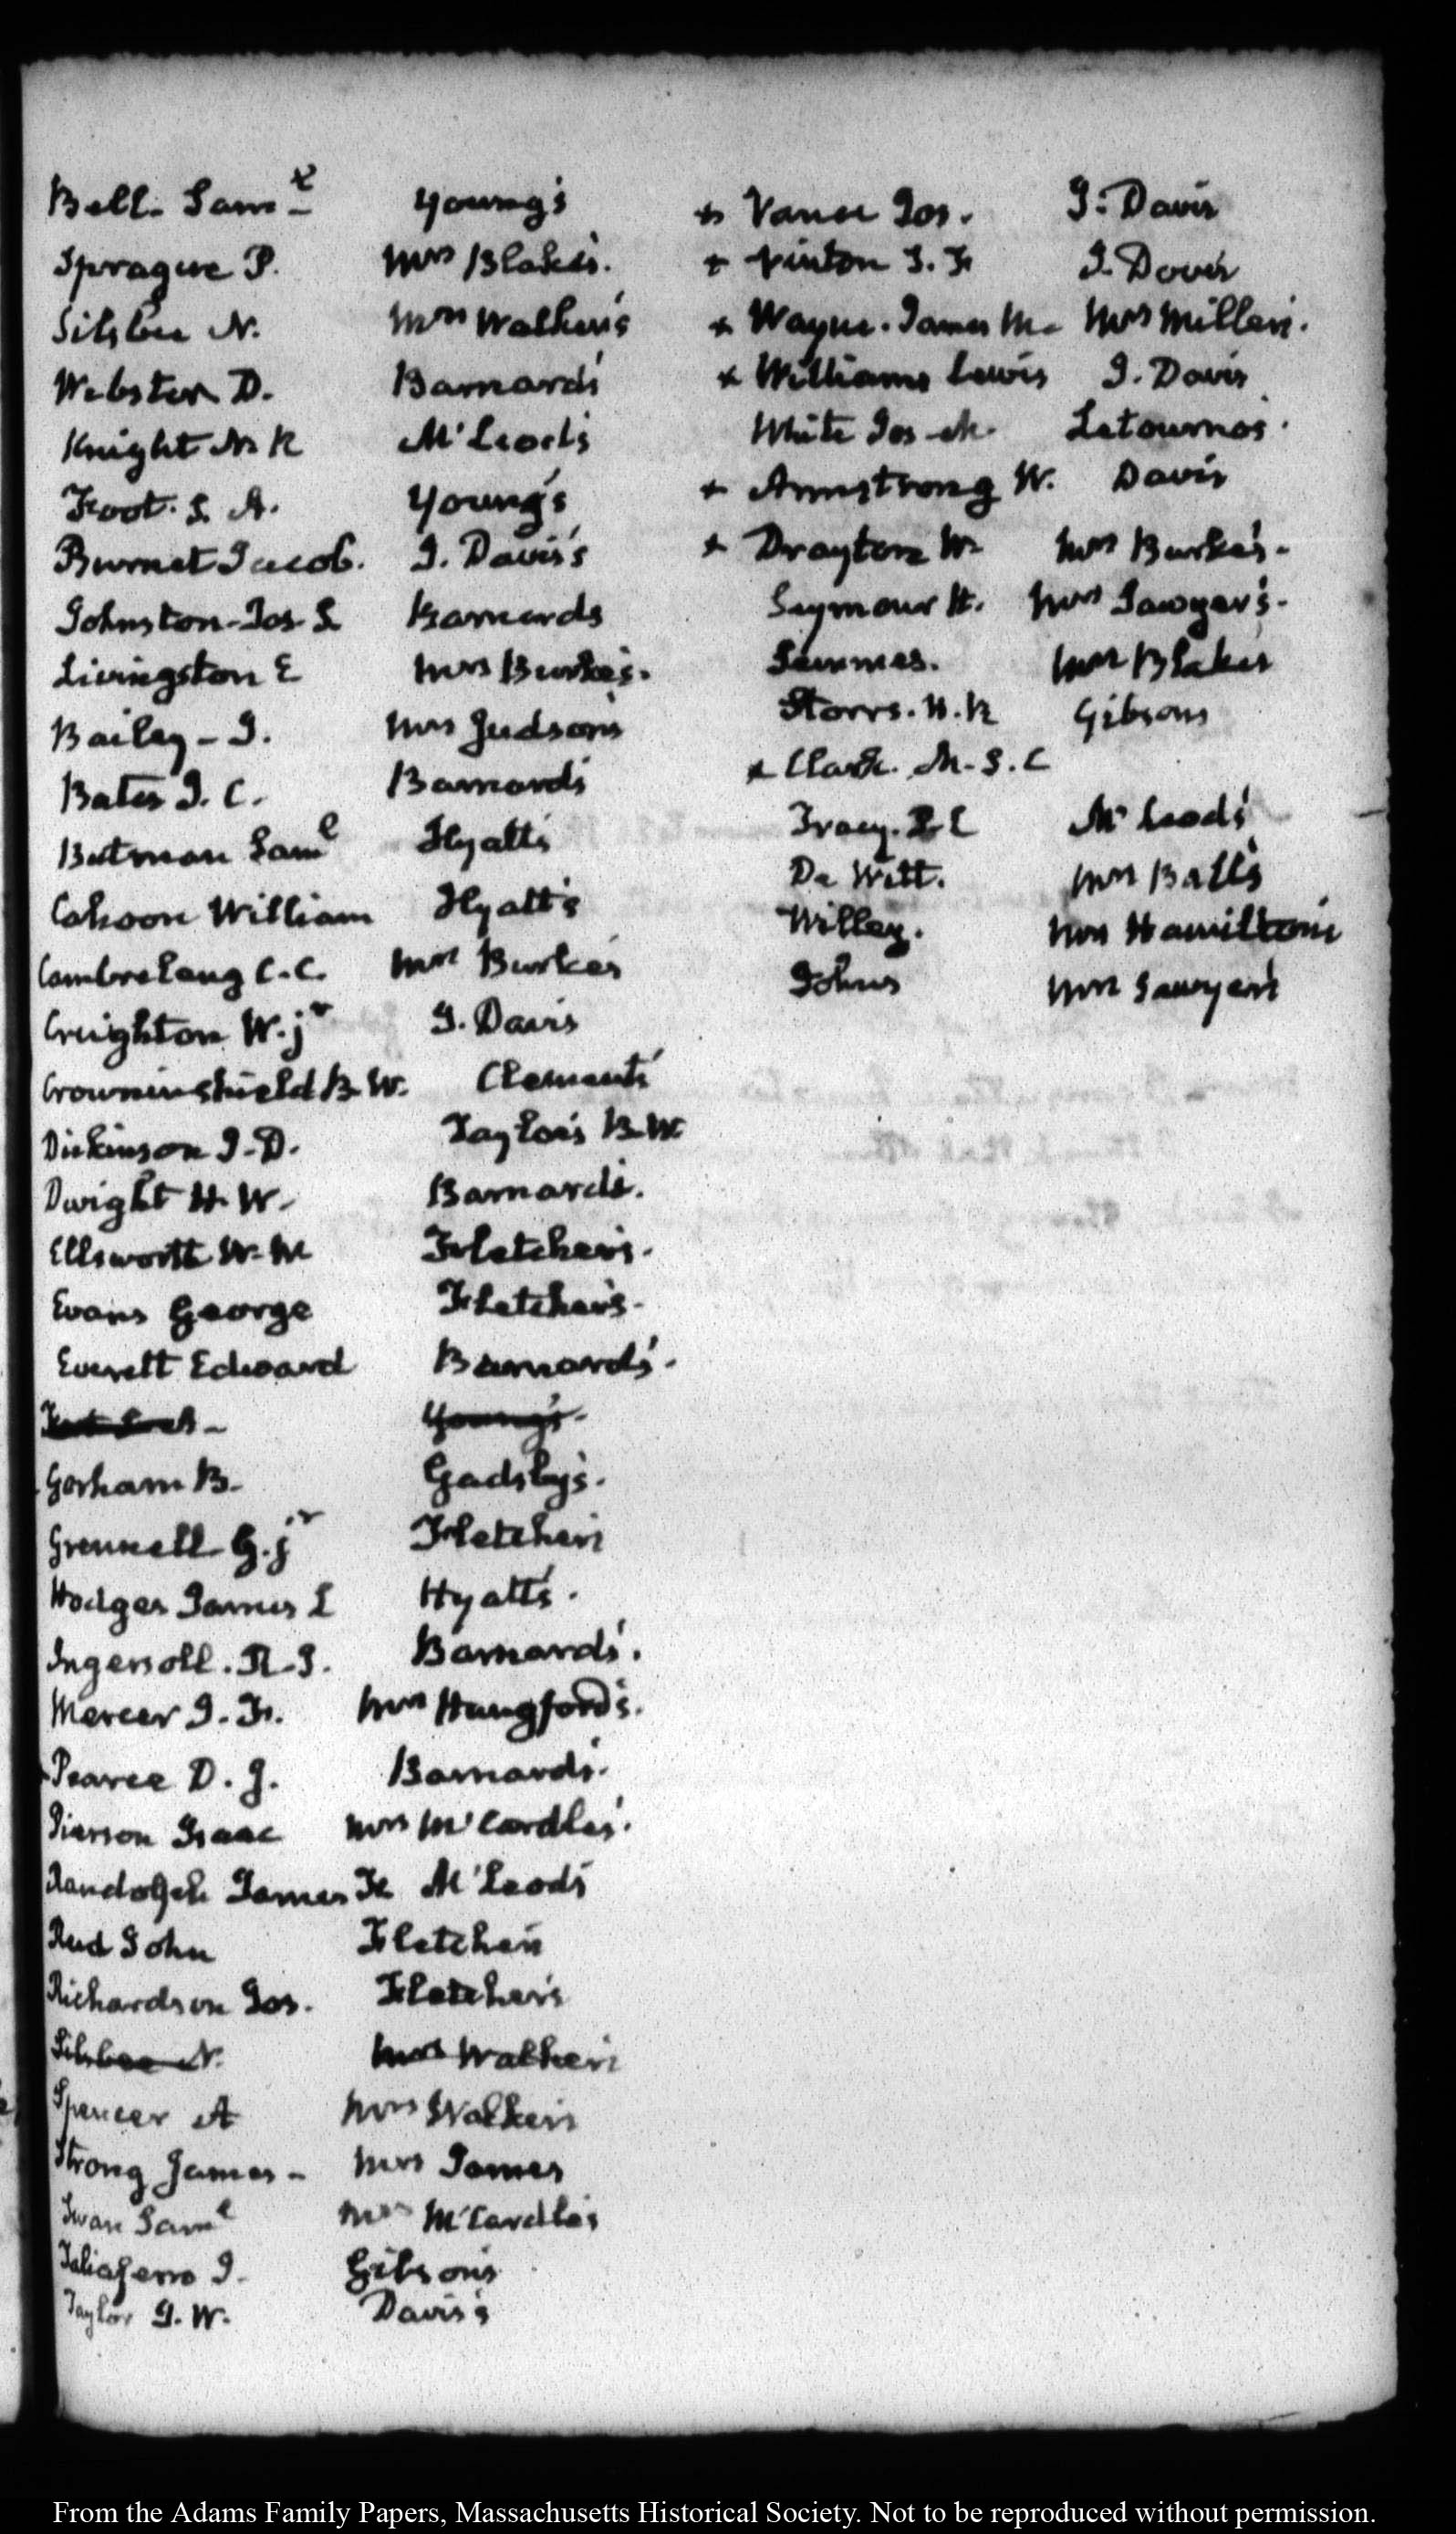 Bell. Saml Young's
Sprague P. Mrs Blake's.
Silsbee N. Mrs Walker's
Webster D. Barnard's
Knight N R M'Leod's
Foot. S. A. Young's
Burnet Jacob. J. Davis's
Johnston. Jos. S. Barnards
Livingston E Mrs Burke's.
Bailey - J. Mrs Judson's
Bates I. C. Barnard's
Butman Saml Hyatt's
Cahoon William Hyatt's
Cambreleng C. C. Mrs Burke's
Creighton W. jr J. Davis
Crowninshield B. W. Clement's
Dickinson J. D. Taylor's B. W
Dwight H. W. Barnard's.
Ellsworth W. W Fletcher's.
Evans George Fletcher's.
Everett Edward Barnard's.
Young's.
Gorham B. Gadsby's.
Grennell G. jr Fletcher's
Hodges James L Hyatt's.
Ingersoll. R. I. Barnard's.
Mercer J. F. Mrs Hungford's.
Pearce D. J. Barnard's.
Pierson Isaac Mrs M'Cardle's.
Randolph James F. M'Leod's
Reed John Fletcher's
Richardson Jos. Fletcher's
Silsbee N. Mrs Walker's
Spencer A Mrs Walker's
Strong James - Mrs James
Swan Saml Mrs M'Cardle's
Taliaferro J. Gibson's
Taylor J. W. Davis's
+ Vance Jos. J. Davis
+ Vinton S. F. J. Davis
+ Wayne. James M. Mrs Miller's.
+ Williams Lewis J. Davis
White Jos. M. Letourno's.
+ Armstrong W. Davis
+ Drayton W. Mrs Burke's.
Seymour H. Mrs Sawyer's.
Semmes. Mrs Blake's
Storrs. H. R Gibsons
+ Clark. M. S. C
Tracy. P. C M'Leod's
De Witt. Mrs Ball's
Willey. Mrs Hamilton's
Johns Mrs Sawyer's
From the Adams Family Papers, Massachusetts Historical Society. Not to be reproduced without permission.